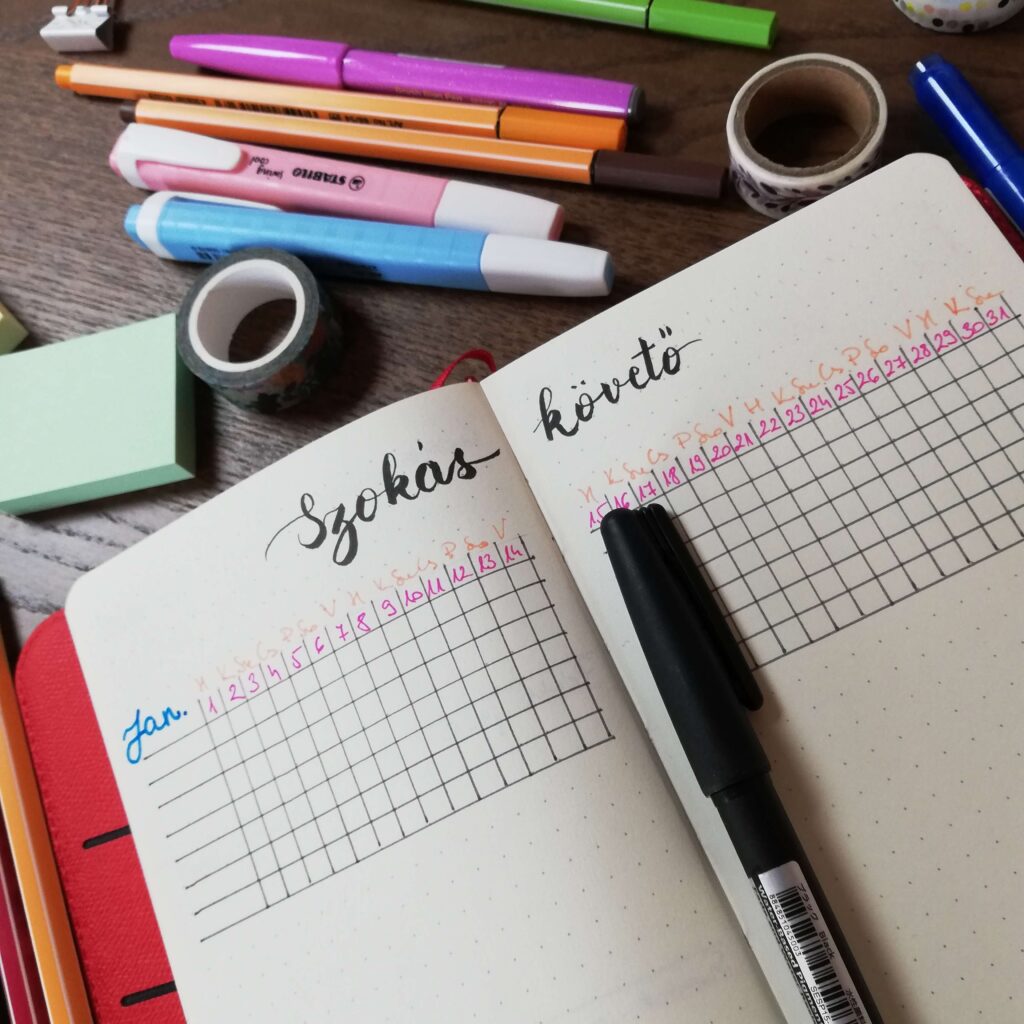 STABILO
swing
cool
Szokás
követő
H K Sze Cs P Szo V H K Sze Cs P Szo V
Jan. 1 2 3 4 5 6 7 8 9 10 11 12 13 14
H K Sze Cs P Szo V H K Sze Cs P Szo V H K Sze
15 16 17 18 19 20 21 22 23 24 25 26 27 28 29 30 31
ブラック Black
Water Based Pigmen